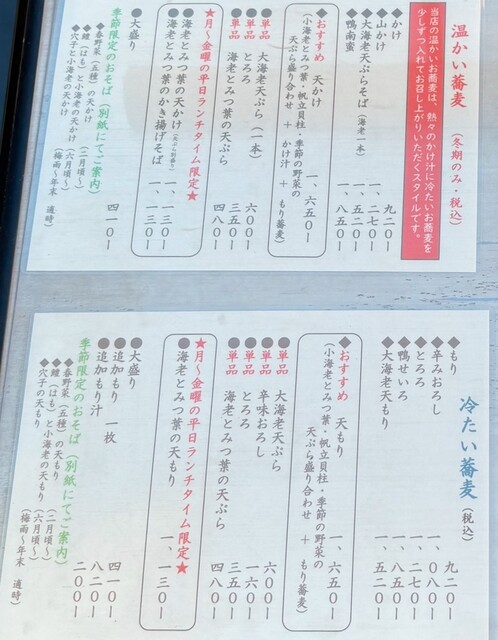 温かい蕎麦 (冬期のみ・税込)
当店の温かいお蕎麦は、熱々のかけ汁に冷たいお蕎麦を
少しずつ入れてお召し上がりいただくスタイルです。
◆かけ 九二〇ー
◆山かけ 一、二七〇ー
◆大海老天ぷらそば(海老一本) 一、五二〇ー
◆鴨南蛮 一、八五〇ー
◆おすすめ 天かけ 一、六五〇ー
(小海老とみつ葉・帆立貝柱・季節の野菜の
天ぷら盛り合わせ + かけ汁 + もり蕎麦)
●単品 大海老天ぷら(一本) 六〇〇ー
●単品 とろろ 三五〇ー
●単品 海老とみつ葉の天ぷら 四八〇ー
★月〜金曜の平日ランチタイム限定★
●海老とみつ葉の天かけ(天ぷら別盛り) 一、一三〇ー
●海老とみつ葉のかき揚げそば 一、一三〇ー
●大盛り 四一〇ー
季節限定のおそば(別紙にてご案内)
◆春野菜(五種)の天かけ (二月頃〜)
◆鱧(はも)と小海老の天かけ (六月頃〜)
◆穴子と小海老の天かけ (梅雨〜年末 適時)
冷たい蕎麦 (税込)
◆もり 九二〇ー
◆辛みおろし 一、〇八〇ー
◆とろろ 一、二七〇ー
◆鴨せいろ 一、八五〇ー
◆大海老天もり 一、五二〇ー
◆おすすめ 天もり 一、六五〇ー
(小海老とみつ葉・帆立貝柱・季節の野菜の
天ぷら盛り合わせ + もり蕎麦)
●単品 大海老天ぷら 六〇〇ー
●単品 辛味おろし 一六〇ー
●単品 とろろ 三五〇ー
●単品 海老とみつ葉の天ぷら 四八〇ー
★月〜金曜の平日ランチタイム限定★
●海老とみつ葉の天もり 一、一三〇ー
●大盛り 四一〇ー
●追加もり 一枚 八二〇ー
●追加もり汁 二〇〇ー
季節限定のおそば(別紙にてご案内)
◆春野菜(五種)の天もり (二月頃〜)
◆鱧(はも)と小海老の天もり (六月頃〜)
◆穴子の天もり (梅雨〜年末 適時)